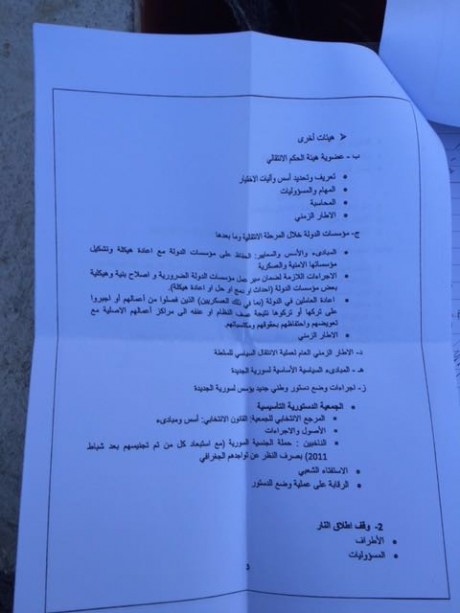 ➢ هيئات أخرى
ب- عضوية هيئة الحكم الانتقالي
• تعريف وتحديد أسس وآليات الاختيار
• المهام والمسؤوليات
• المحاسبة
• الاطار الزمني
ج- مؤسسات الدولة خلال المرحلة الانتقالية وما بعدها
• المبادىء والأسس والمعايير: الحفاظ على مؤسسات الدولة مع اعادة هيكلة وتشكيل
مؤسساتها الأمنية والعسكرية
• الاجراءات اللازمة لضمان سير عمل مؤسسات الدولة الضرورية و اصلاح بنية وهيكلية
بعض مؤسسات الدولة (احداث او دمج او حل او اعادة هيكلة).
• اعادة العاملين في الدولة (بما في ذلك العسكريين) الذين فصلوا من أعمالهم أو اجبروا
على تركها أو تركوها نتيجة عسف النظام او عنفه الى مراكز أعمالهم الاصلية مع
تعويضهم واحتفاظهم بحقوقهم ومكتسباتهم.
• الاطار الزمني
د- الاطار الزمني العام لعملية الانتقال السياسي للسلطة
هـ- المبادىء السياسية الأساسية لسورية الجديدة
ز- اجراءات وضع دستور وطني جديد يؤسس لسورية الجديدة
• الجمعية الدستورية التأسيسية
• المرجع الانتخابي للجمعية: القانون الانتخابي: أسس ومبادىء
• الأصول والاجراءات
• الناخبين : حملة الجنسية السورية (مع استبعاد كل من تم تجنيسهم بعد شباط
2011) بصرف النظر عن تواجدهم الجغرافي
• الاستفتاء الشعبي
• الرقابة على عملية وضع الدستور
2- وقف اطلاق النار
• الأطراف
• المسؤوليات